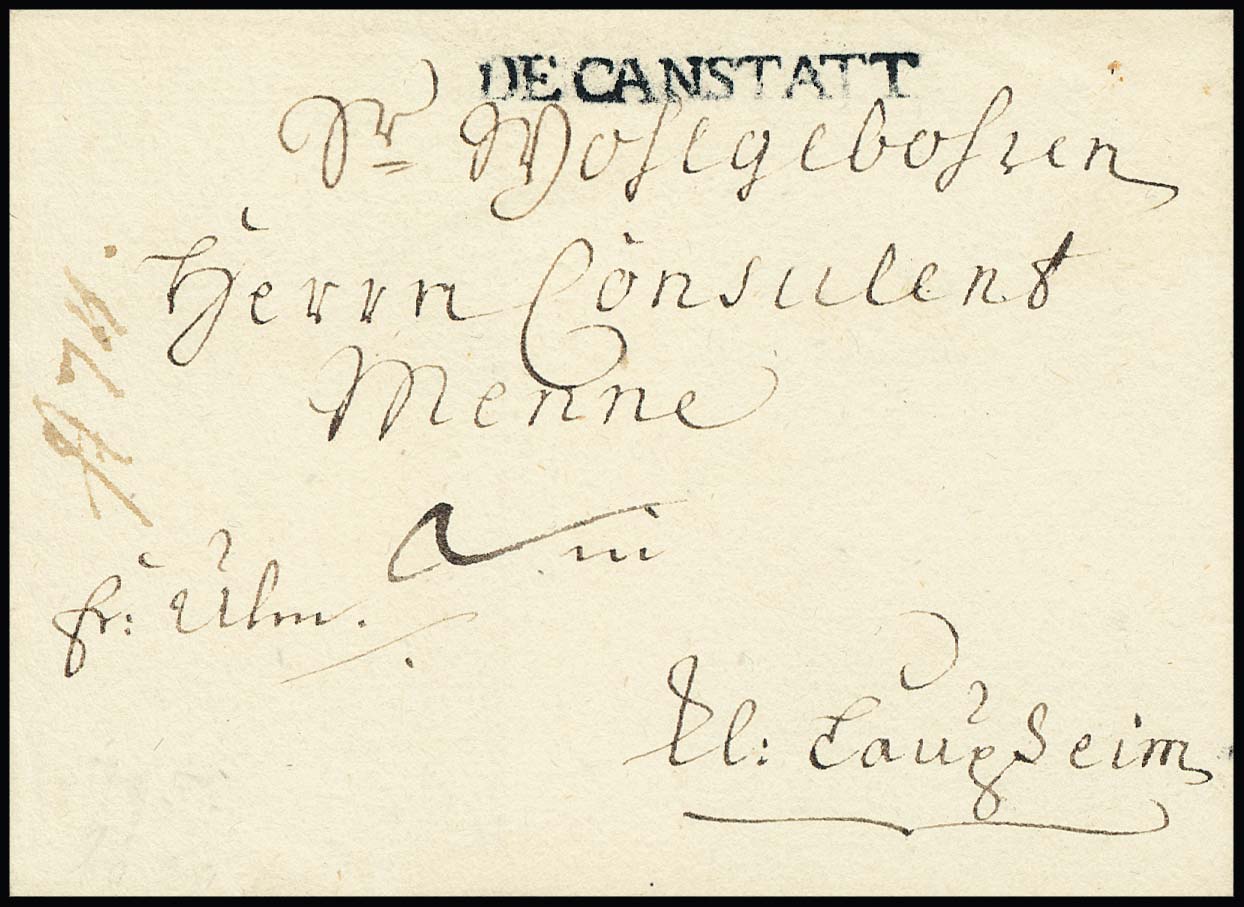 DE CANSTATT
Sr Wohlgebohren
Herrn Consulent
Menne
in
fr: Ulm.
Kl: Laupheim